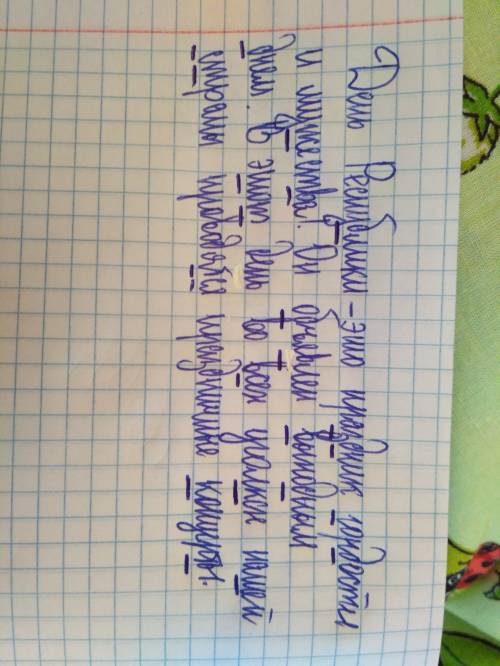 День Республики - это праздник гордости
и мужества. Он объявлен выходным
днём. В этот день во всех уголках нашей
страны проводятся праздничные концерты.